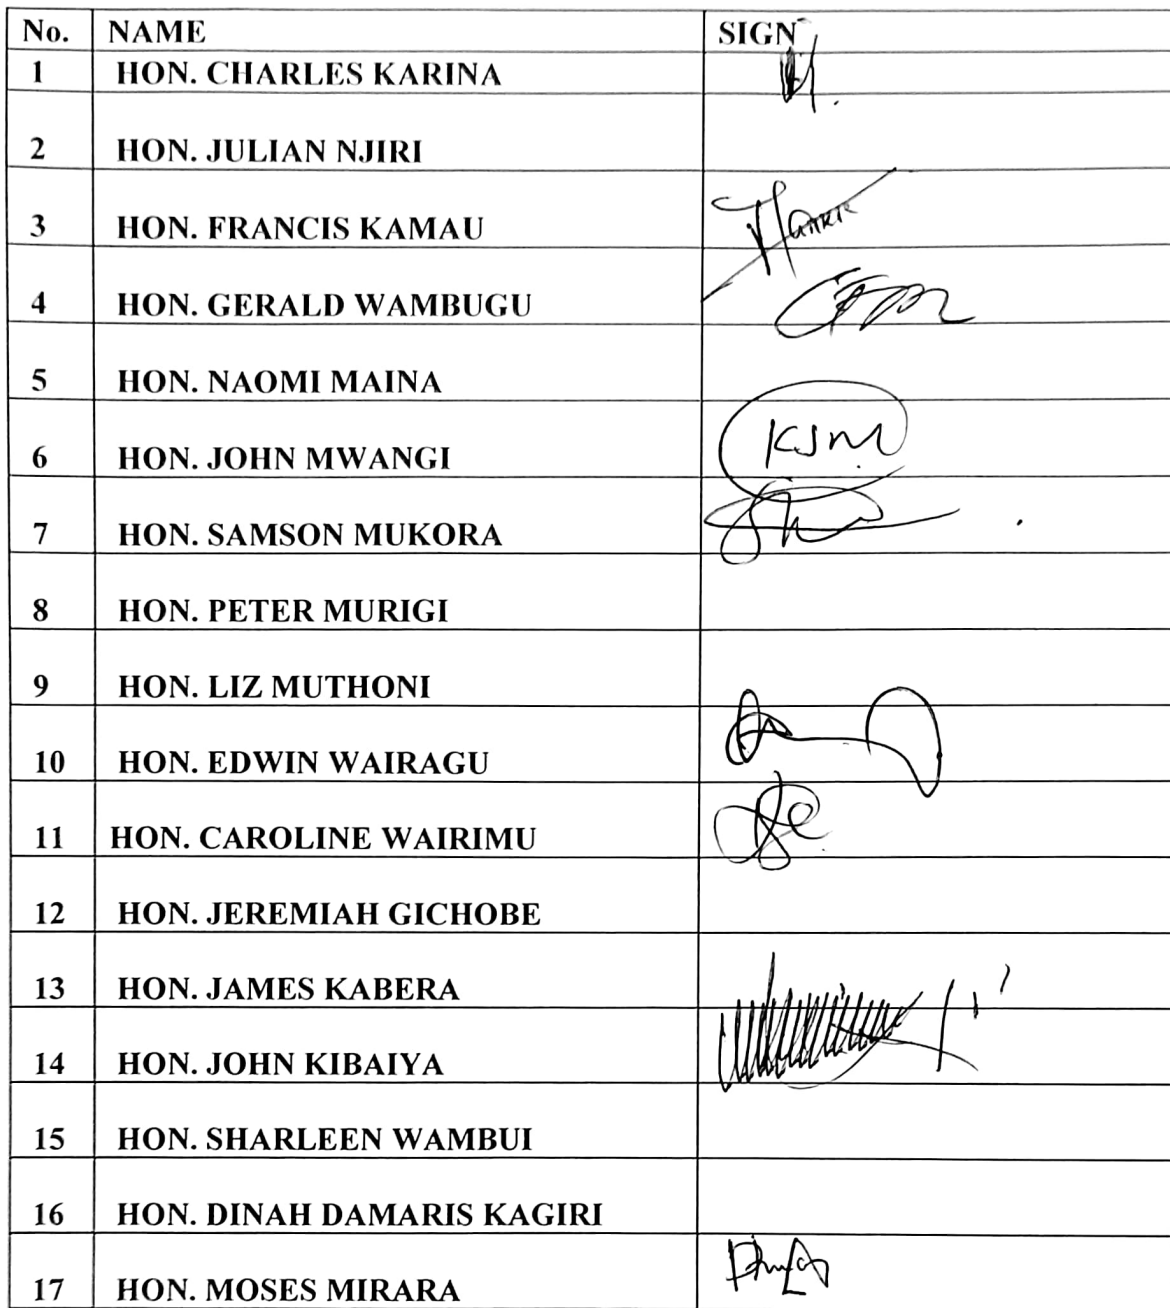 No. NAME SIGN
1 HON. CHARLES KARINA
2 HON. JULIAN NJIRI
3 HON. FRANCIS KAMAU
4 HON. GERALD WAMBUGU
5 HON. NAOMI MAINA
6 HON. JOHN MWANGI KJM
7 HON. SAMSON MUKORA
8 HON. PETER MURIGI
9 HON. LIZ MUTHONI
10 HON. EDWIN WAIRAGU
11 HON. CAROLINE WAIRIMU
12 HON. JEREMIAH GICHOBE
13 HON. JAMES KABERA
14 HON. JOHN KIBAIYA
15 HON. SHARLEEN WAMBUI
16 HON. DINAH DAMARIS KAGIRI
17 HON. MOSES MIRARA